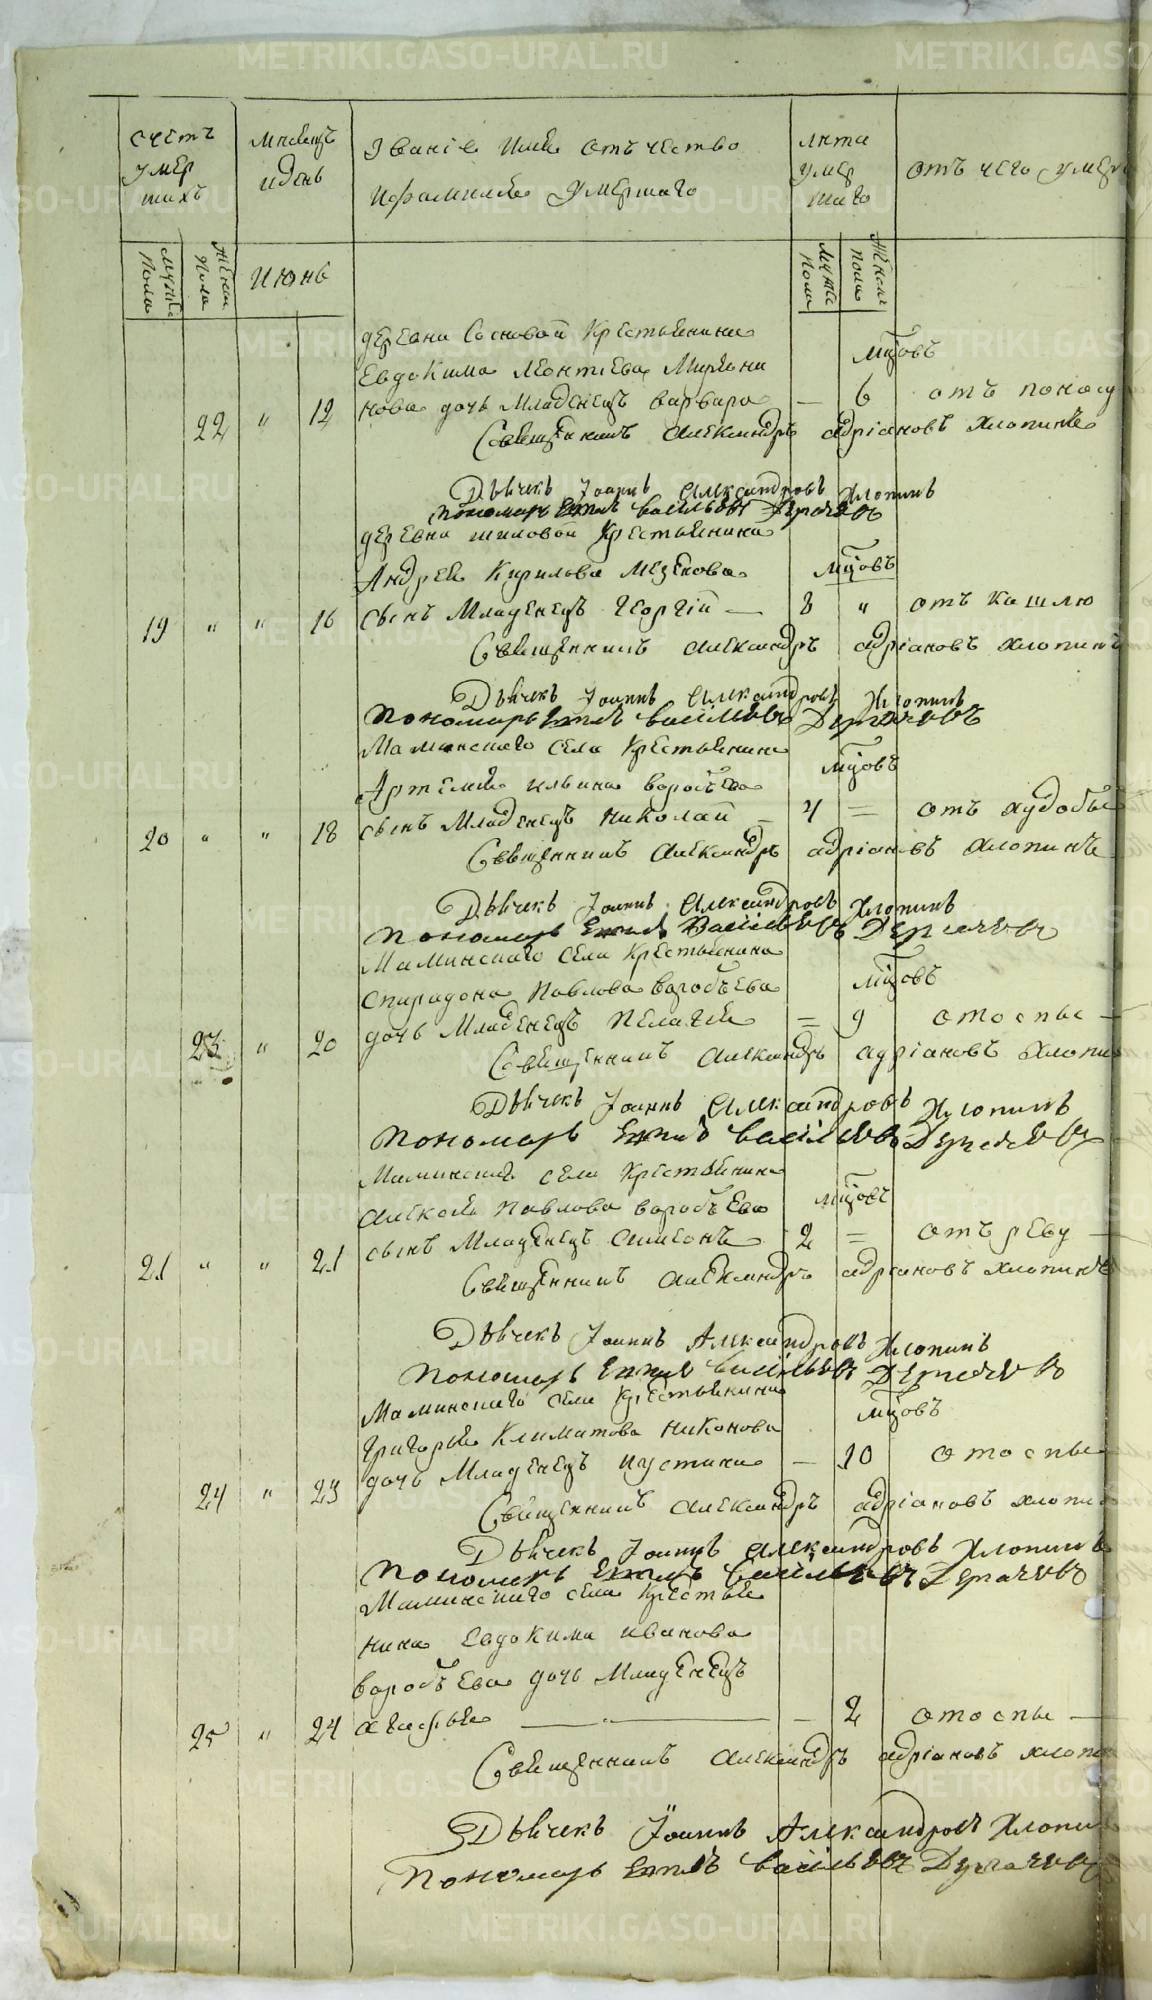 счетъ умер шихъ
мѣсяцъ и день
Званіе Имя отъчество и фамилія Умершаго
лѣта умер шаго
отъ чего умер
мужес Пола
Женск Пола
Июнь
мужес Пола
Женск пола
деревни Сосновой Крестьянина
Евдокима Леонтіева Миряни мцовъ
22 " 12 нова дочь Младенецъ Варвара — 6 отъ поносу
Священникъ Александръ Адріановъ Хлопинъ
Дьячекъ Іоаннъ Александровъ Хлопинъ
Пономарь Васильевъ Дергачевъ
деревни Шиловой Крестьянина
Андрея Кирилова мцовъ
19 " " 16 сынъ Младенецъ Георгій — 8 " отъ кашлю
Священникъ Александръ Адріановъ Хлопинъ
Дьячекъ Іоаннъ Александровъ Хлопинъ
Пономарь Васильевъ Дергачевъ
Маминскаго села Крестьянина
Артемія Ильина Воробъева мцовъ
20 " " 18 сынъ Младенецъ Николай — 4 = отъ худобы
Священникъ Александръ Адріановъ Хлопинъ
Дьячекъ Іоаннъ Александровъ Хлопинъ
Пономарь Васильевъ Дергачевъ
Маминскаго села Крестьянина
Спиридона Павлова Воробъева мцовъ
23 " 20 дочь Младенецъ Пелагія = 9 отоспы —
Священникъ Александръ Адріановъ Хлопи
Дьячекъ Іоаннъ Александровъ Хлопинъ
Пономарь Васильевъ Дергачевъ
Маминскаго села Крестьянина
Алексѣя Павлова Воробъева мцовъ
21 " " 21 сынъ Младенецъ Симеонъ 2 = отъ реву —
Священникъ Александръ Адріановъ Хлопинъ
Дьячекъ Іоаннъ Александровъ Хлопинъ
Пономарь Васильевъ Дергачевъ
Маминскаго села Крестьянина
Григорья Климатова Никонова мцовъ
24 " 23 дочь Младенецъ Иустина — 10 отоспы
Священникъ Александръ Адріановъ Хлопи
Дьячекъ Іоаннъ Александровъ Хлопинъ
Пономарь Васильевъ Дергачевъ
Маминскаго села Крестья
нина Евдокима Иванова
Воробъева дочь Младенецъ
25 " 24 Агафья — 2 отоспы —
Священникъ Александръ Адріановъ Хлопи
Дьячекъ Іоаннъ Александровъ Хлопи
Пономарь Васильевъ Дергачевъ
METRIKI.GASO-URAL.RU